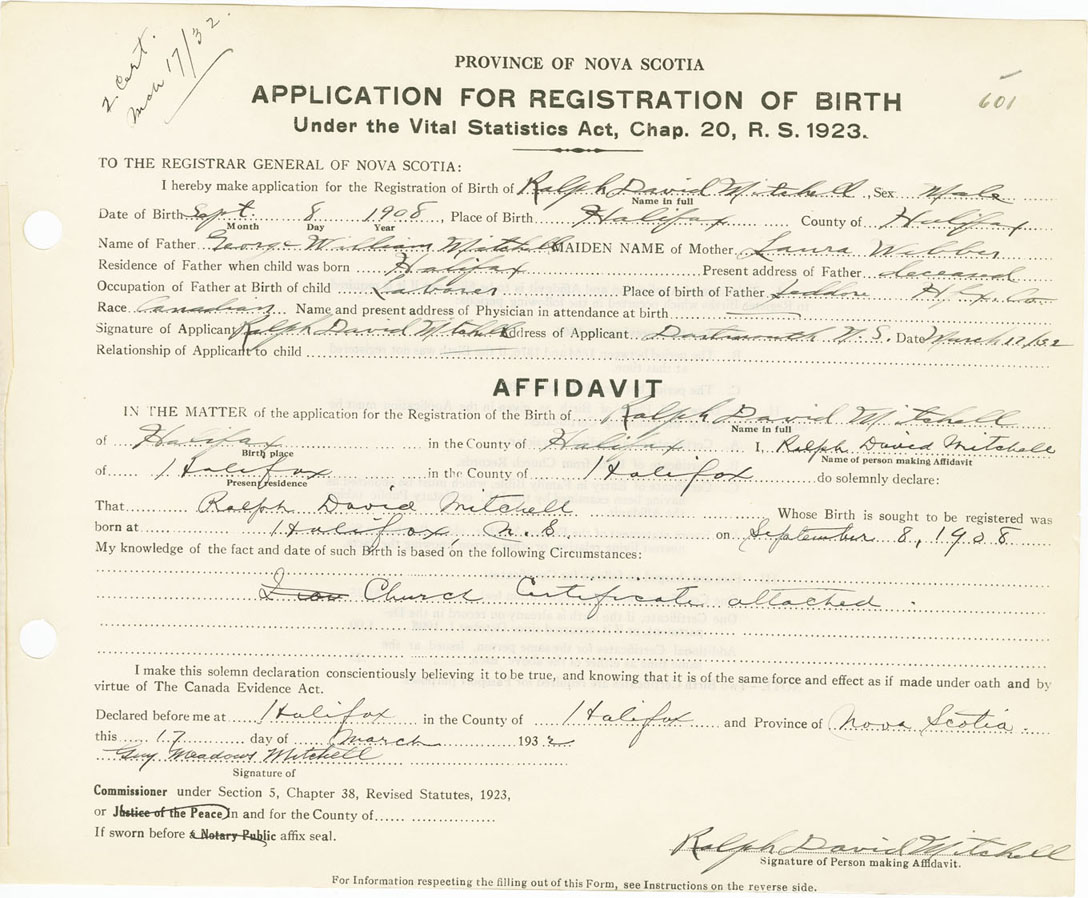 2 Cert.
Mch 17/32.
PROVINCE OF NOVA SCOTIA
601
APPLICATION FOR REGISTRATION OF BIRTH
Under the Vital Statistics Act, Chap. 20, R. S. 1923.
TO THE REGISTRAR GENERAL OF NOVA SCOTIA:
I hereby make application for the Registration of Birth of Ralph David Mitchell, Sex Male
Name in full
Date of Birth Sept. 8 1908, Place of Birth Halifax County of Halifax
Month Day Year
Name of Father George William Mitchell MAIDEN NAME of Mother Laura Webber
Residence of Father when child was born Halifax Present address of Father deceased
Occupation of Father at Birth of child Laborer Place of birth of Father Jeddore Hfx. Co.
Race Canadian Name and present address of Physician in attendance at birth
Signature of Applicant Ralph David Mitchell Address of Applicant Dartmouth N. S. Date March 17/32
Relationship of Applicant to child
AFFIDAVIT
IN THE MATTER of the application for the Registration of the Birth of Ralph David Mitchell
Name in full
of Halifax in the County of Halifax I, Ralph David Mitchell
Birth place Name of person making Affidavit
of Halifax in the County of Halifax do solemnly declare:
Present residence
That Ralph David Mitchell Whose Birth is sought to be registered was
born at Halifax, N. S. on September 8, 1908
My knowledge of the fact and date of such Birth is based on the following Circumstances:
Church Certificate attached.
I make this solemn declaration conscientiously believing it to be true, and knowing that it is of the same force and effect as if made under oath and by
virtue of The Canada Evidence Act.
Declared before me at Halifax in the County of Halifax and Province of Nova Scotia.
this 17 day of March 1932
Guy Meadows Mitchell
Signature of
Commissioner under Section 5, Chapter 38, Revised Statutes, 1923,
or Justice of the Peace In and for the County of
If sworn before a Notary Public affix seal.
Ralph David Mitchell
Signature of Person making Affidavit.
For Information respecting the filling out of this Form, see Instructions on the reverse side.